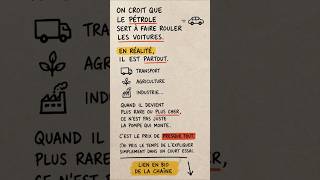 ON CROIT QUE
LE PÉTROLE
SERT À FAIRE ROULER
LES VOITURES.
EN RÉALITÉ,
IL EST PARTOUT.
TRANSPORT
AGRICULTURE
INDUSTRIE...
QUAND IL DEVIENT
PLUS RARE OU PLUS CHER,
CE N'EST PAS JUSTE
LA POMPE QUI MONTE.
QUAND IL DEVIENT
PLUS RARE
C'EST LE PRIX DE PRESQUE TOUT.
J'AI PRIS LE TEMPS DE L'EXPLIQUER
SIMPLEMENT DANS UN COURT ESSAI.
LIEN EN BIO
DE LA CHAÎNE